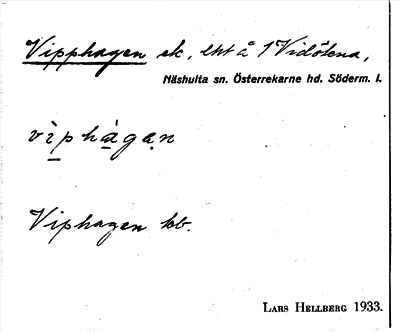 Vipphagen sk, lht å 1 Vidökna,
Näshulta sn. Österrekarne hd. Söderm. l.
vìphàgan
Viphagen kb.
LARS HELLBERG 1933.